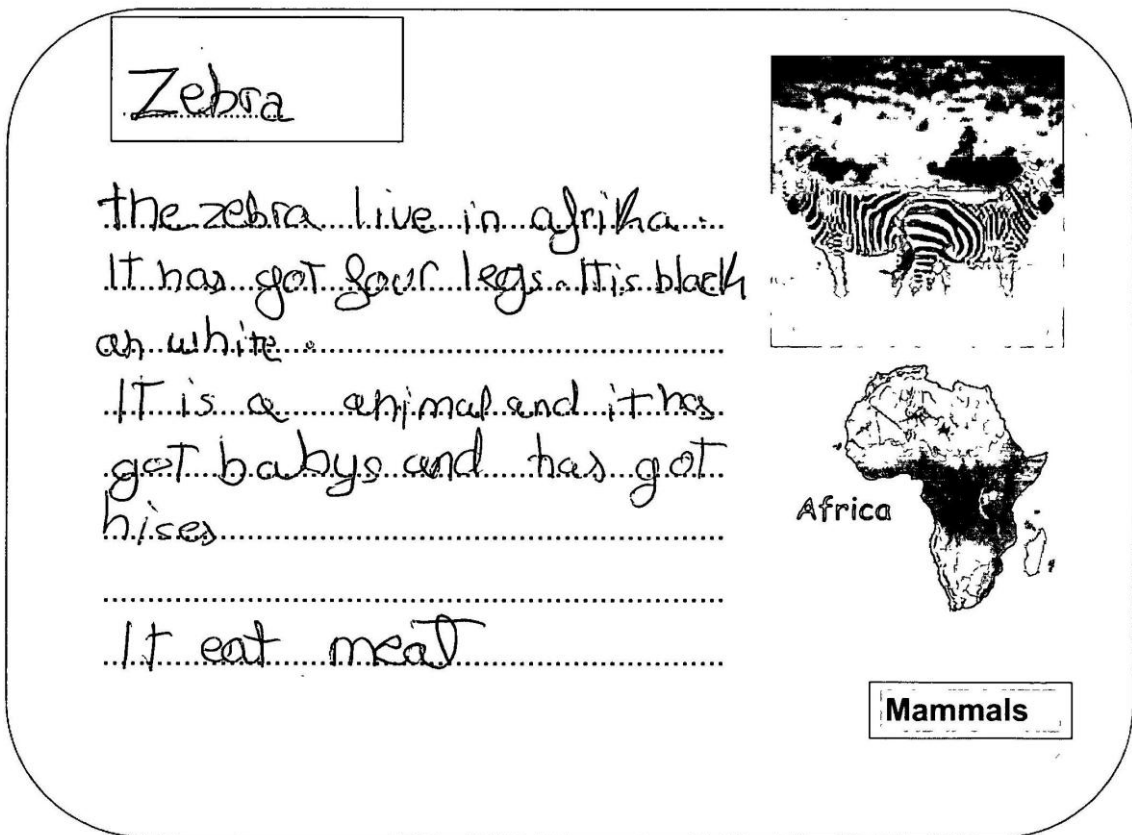 Zebra
the zebra live in afrika.
It has got four legs. It is black
an white.
It is a animal and it has
got babys and has got
hises
It eat meat
Africa
Mammals